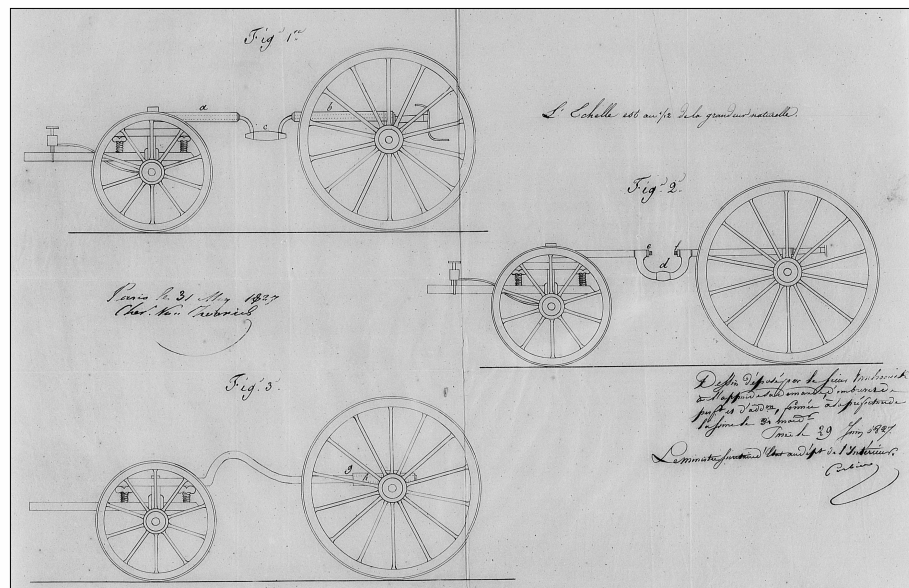 Fig. 1re
a
b
c
L'Echelle est au 1/12 de la grandeur naturelle.
Fig. 2e
e f
d
Paris le 31 May 1827
Fig. 3.
g
h
Dessin déposé par le Sieur
à l'appui de sa demande d'un brevet de
perf. et d'addon, formée à la préfecture de
la Seine le 31 mai
le 29 Juin 1827.
Le ministre Secrétaire d'Etat au dépt de l'Intérieur.